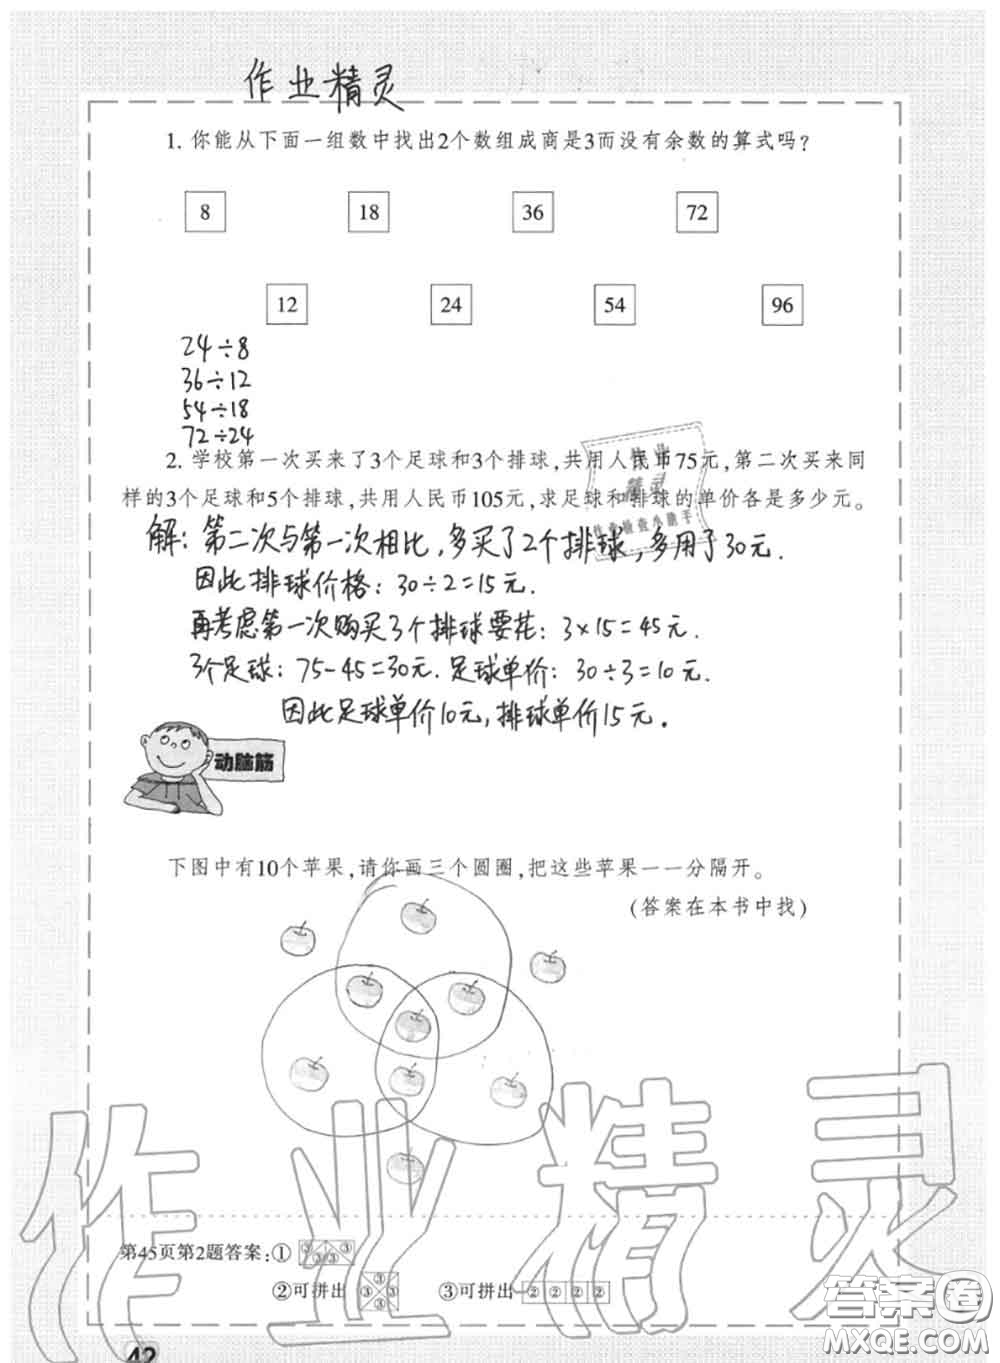 作业精灵
1. 你能从下面一组数中找出2个数组成商是3而没有余数的算式吗?
8 18 36 72
12 24 54 96
24÷8
36÷12
54÷18
72÷24
2. 学校第一次买来了3个足球和3个排球,共用人民币75元,第二次买来同
样的3个足球和5个排球,共用人民币105元,求足球和排球的单价各是多少元。
作业
精灵
作业检查小助手
解:第二次与第一次相比,多买了2个排球,多用了30元.
因此排球价格:30÷2=15元.
再考虑第一次购买3个排球要花:3×15=45元.
3个足球:75-45=30元.足球单价:30÷3=10元.
因此足球单价10元,排球单价15元.
动脑筋
下图中有10个苹果,请你画三个圆圈,把这些苹果一一分隔开。
(答案在本书中找)
作业精灵
第45页第2题答案:① ③③③③
②可拼出 ③③③③ ③可拼出 ②②②②
答案圈
MXQE.COM
42